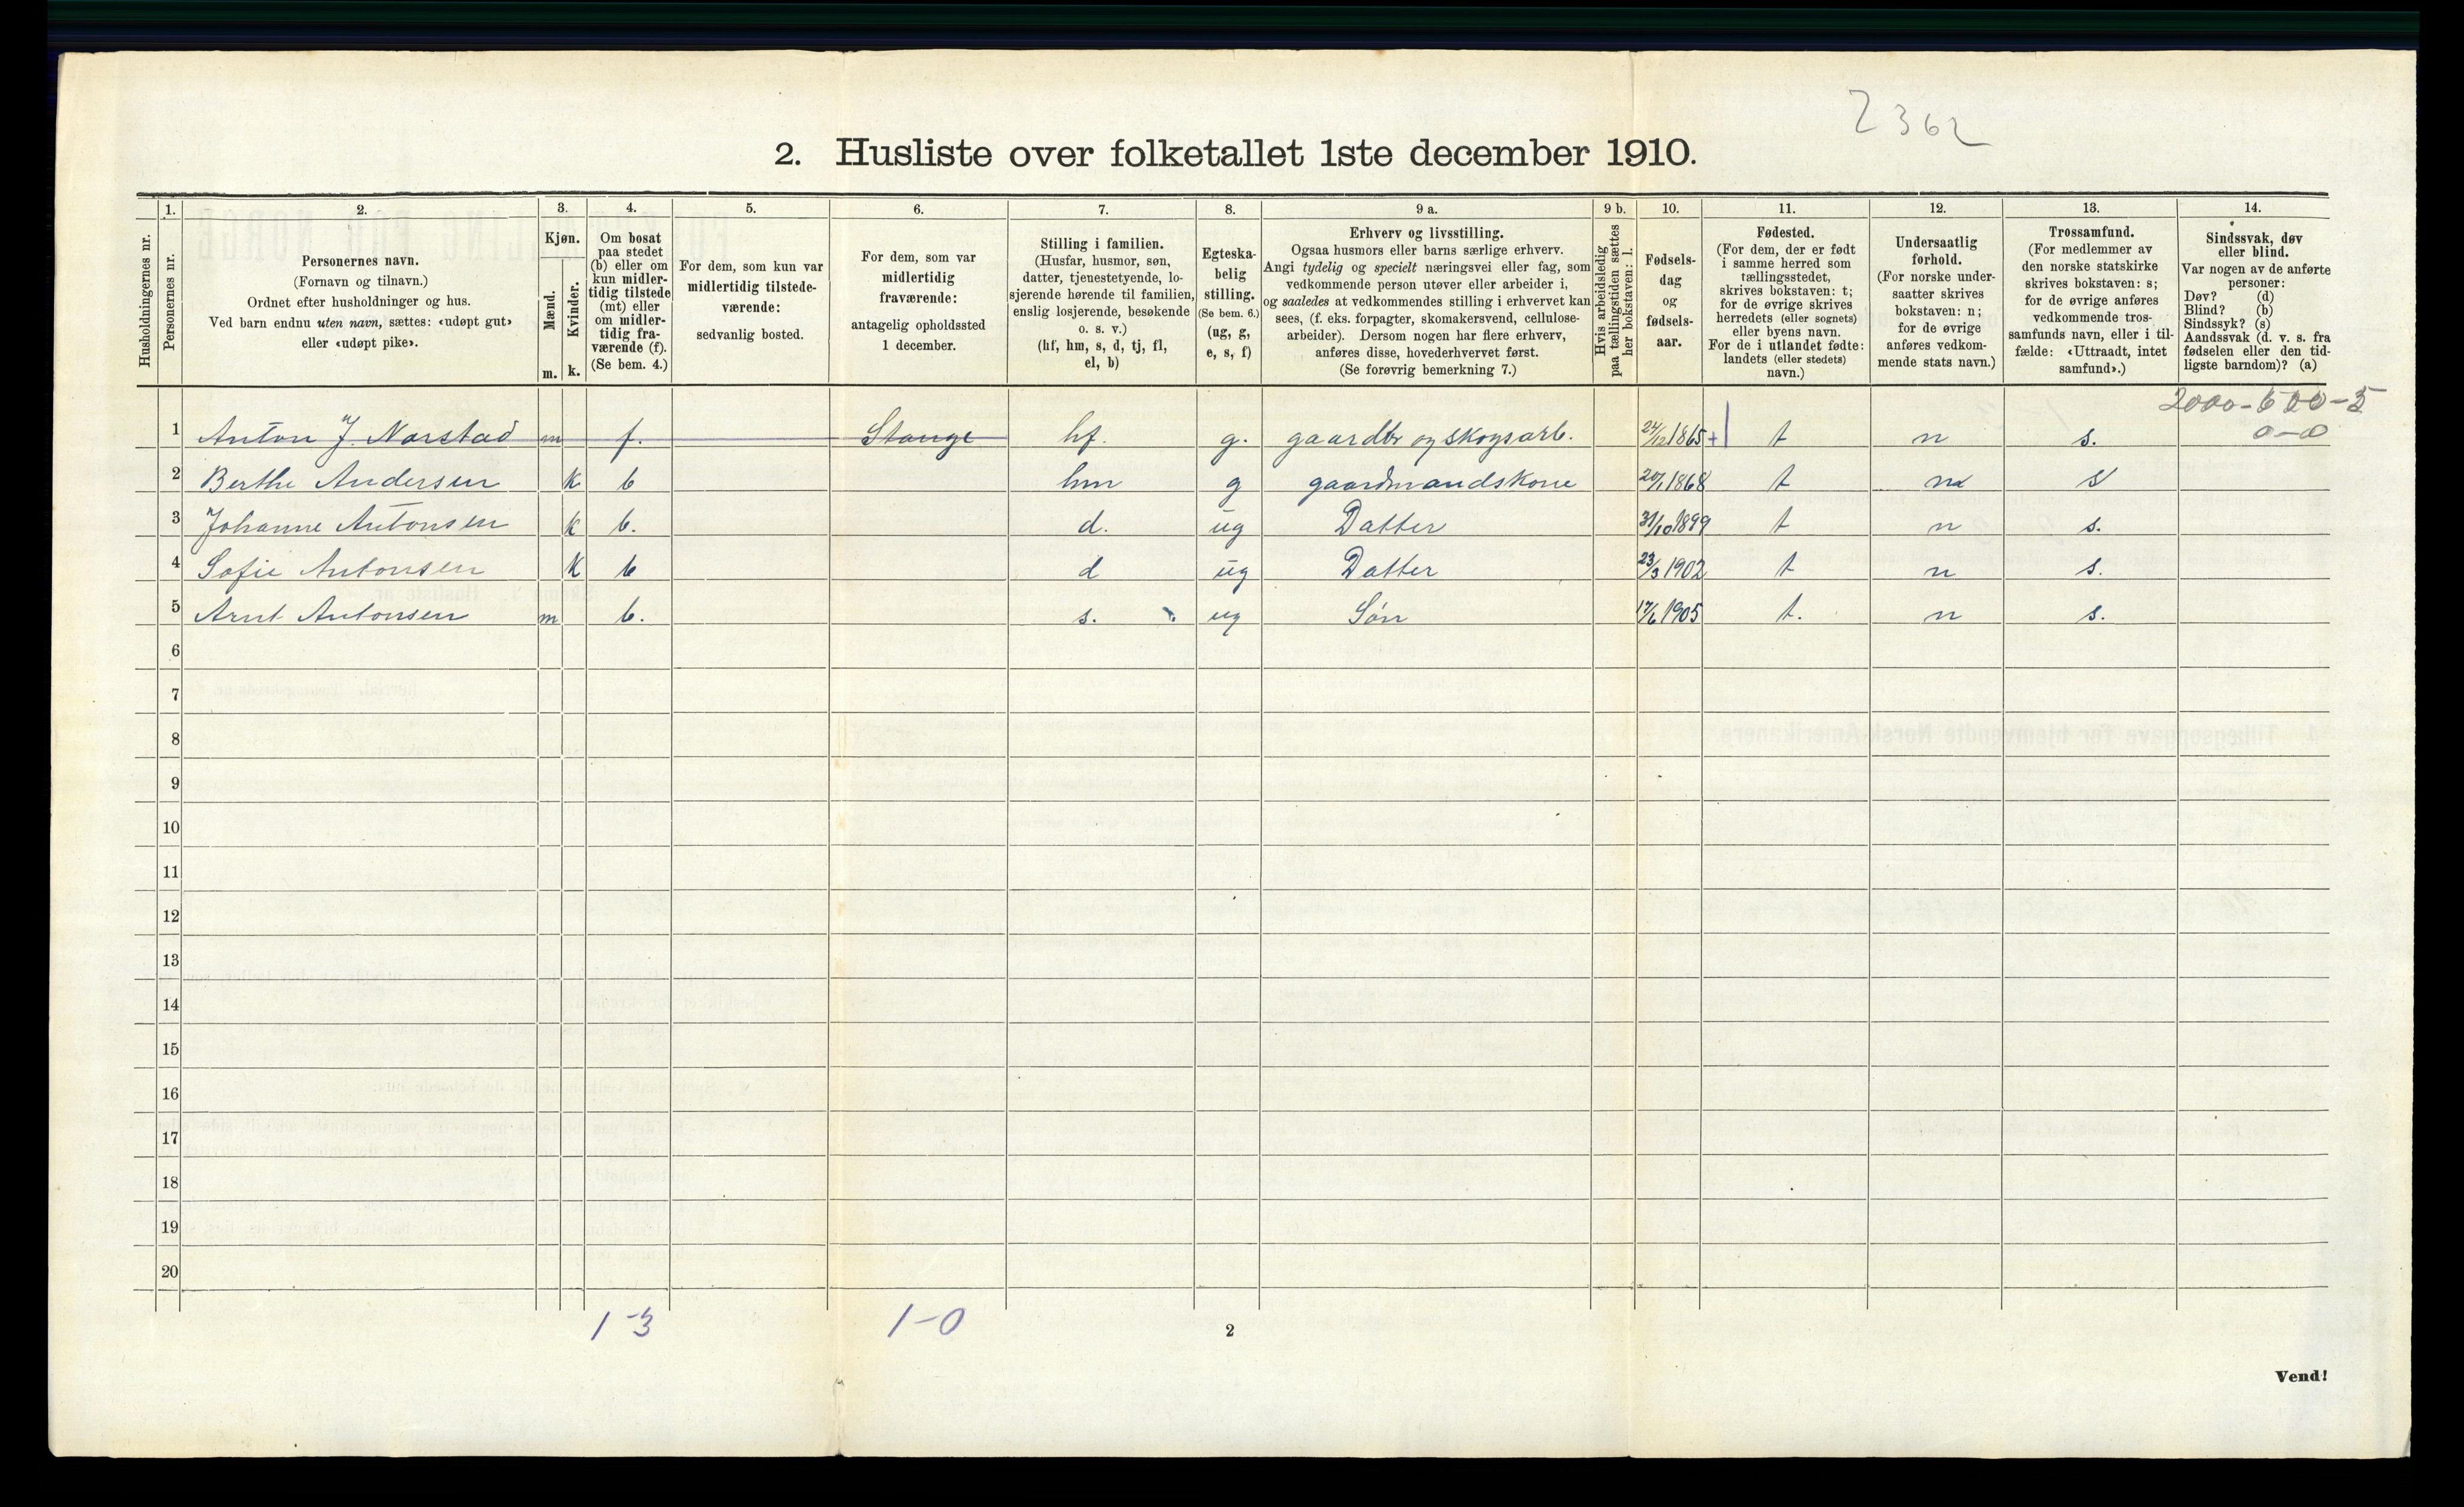 2362
2. Husliste over folketallet 1ste december 1910.
Husholdningernes nr.
1.
Personernes nr.
2.
Personernes navn.
(Fornavn og tilnavn.)
Ordnet efter husholdninger og hus.
Ved barn endnu uten navn, sættes: «udøpt gut»
eller «udøpt pike».
3.
Kjøn.
Mænd.
Kvinder.
m. k.
4.
Om bosat
paa stedet
(b) eller om
kun midler-
tidig tilstede
(mt) eller
om midler-
tidig fra-
værende (f).
(Se bem. 4.)
5.
For dem, som kun var
midlertidig tilstede-
værende:
sedvanlig bosted.
6.
For dem, som var
midlertidig
fraværende:
antagelig opholdssted
1 december.
7.
Stilling i familien.
(Husfar, husmor, søn,
datter, tjenestetyende, lo-
sjerende hørende til familien,
enslig losjerende, besøkende
o. s. v.)
(hf, hm, s, d, tj, fl,
el, b)
8.
Egteska-
belig
stilling.
(Se bem. 6.)
(ug, g,
e, s, f)
9 a.
Erhverv og livsstilling.
Ogsaa husmors eller barns særlige erhverv.
Angi tydelig og specielt næringsvei eller fag, som
vedkommende person utøver eller arbeider i,
og saaledes at vedkommendes stilling i erhvervet kan
sees, (f. eks. forpagter, skomakersvend, cellulose-
arbeider). Dersom nogen har flere erhverv,
anføres disse, hovederhvervet først.
(Se forøvrig bemerkning 7.)
9 b.
Hvis arbeidsledig
paa tællingstiden sættes
her bokstaven: l.
10.
Fødsels-
dag
og
fødsels-
aar.
11.
Fødested.
(For dem, der er født
i samme herred som
tællingsstedet,
skrives bokstaven: t;
for de øvrige skrives
herredets (eller sognets)
eller byens navn.
For de i utlandet fødte:
landets (eller stedets)
navn.)
12.
Undersaatlig
forhold.
(For norske under-
saatter skrives
bokstaven: n;
for de øvrige
anføres vedkom-
mende stats navn.)
13.
Trossamfund.
(For medlemmer av
den norske statskirke
skrives bokstaven: s;
for de øvrige anføres
vedkommende tros-
samfunds navn, eller i til-
fælde: «Uttraadt, intet
samfund».)
14.
Sindssvak, døv
eller blind.
Var nogen av de anførte
personer:
Døv? (d)
Blind? (b)
Sindssyk? (s)
Aandssvak (d. v. s. fra
fødselen eller den tid-
ligste barndom)? (a)
2000-600-5
0-0
1 Anton J. Narstad m f. Stange hf. g. gaardbr og skogsarb. 24/12 1865 + t n s.
2 Berthe Andersen k b hm g gaardmandskone 20/1 1868 t n s
3 Johanne Antonsen k b. d. ug Datter 31/10 1899 t n s.
4 Sofie Antonsen k b d ug Datter 23/3 1902 t n s.
5 Arnt Antonsen m b. s. ug Søn 17/6 1905 t. n s.
6
7
8
9
10
11
12
13
14
15
16
17
18
19
20
1-3 1-0
2
Vend!